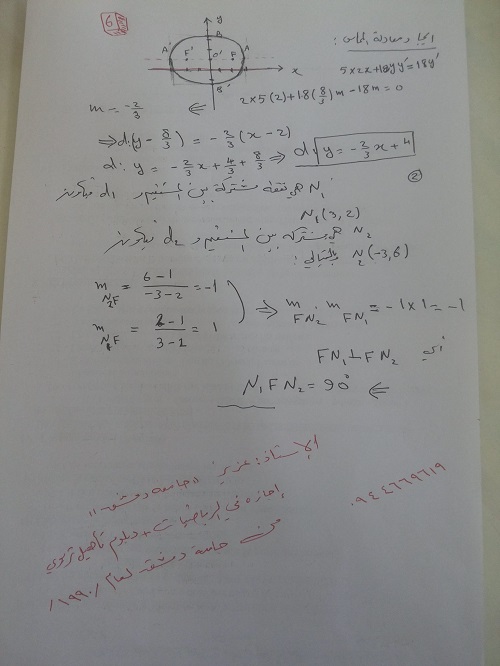 6
y
B
A'
F'
O'
F
A
x
B'
إيجاد معادلة المماس :
5x2x+18yy'=18y'
2x5(2)+18(8/3)m-18m=0
m = -2/3 ⇐
⇒ d: (y - 8/3) = -2/3 (x-2)
d: y = -2/3 x + 4/3 + 8/3 ⇒ d: y = -2/3 x + 4
②
N₁ هي نقطة مشتركة بين المستقيم و d₁
N₁(3,2)
N₂ هي مشتركة بين المستقيم و d₂
N₂(-3,6) بالتالي :
m N₂F = 6-1 / -3-2 = -1
m N₁F = 2-1 / 3-2 = 1
⇒ m FN₂ . m FN₁ = -1x1 = -1
أي FN₁ ⊥ FN₂
N₁FN₂ = 90° ⇐
الإستاذ : عزيز "جامعة دمشق"
إجازة في الرياضيات + دبلوم تأهيل تربوي
من جامعة دمشق لعام /١٩٩٠/
٠٩٤٤٦٦٩٦١٩